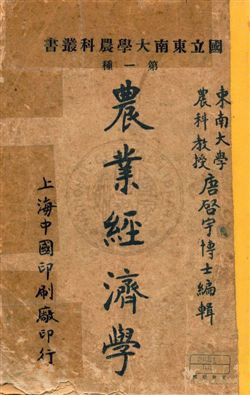 國立東南大學農科叢書
第一種
東南大學
農科教授唐啓宇博士編輯
農業經濟學
上海中國印刷廠印行